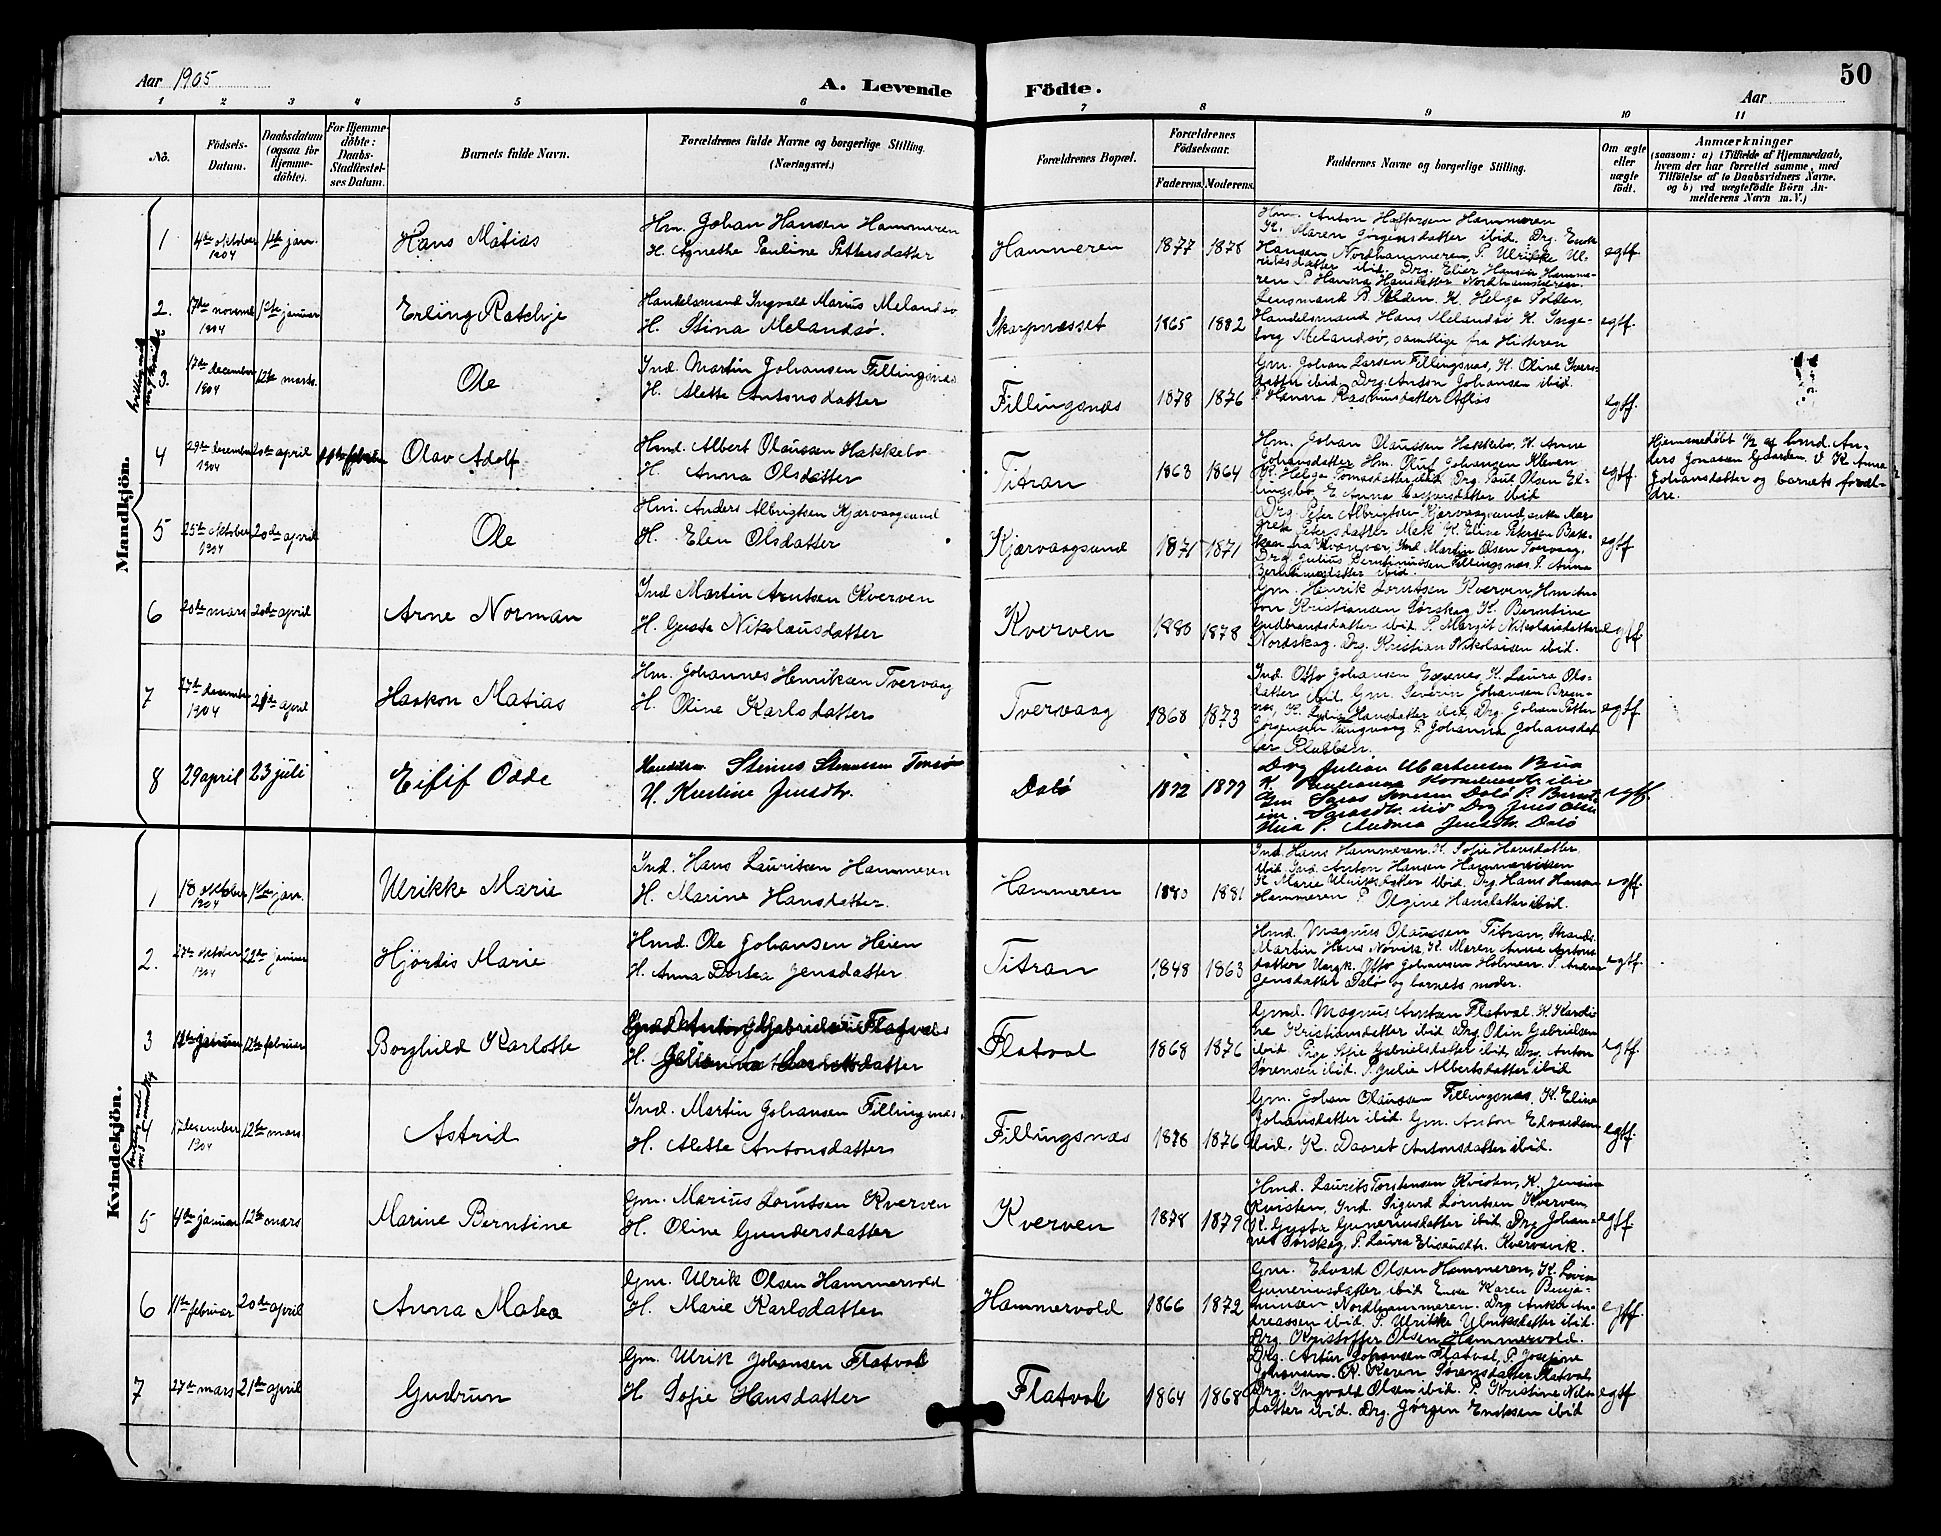 Aar 1905
A. Levende Födte.
Aar
50
1 2 3 4 5 6 7 8 9 10 11
No.
Födsels-Datum.
Daabsdatum (ogsaa for Hjemme-döbte).
For Hjemme-döbte: Daabs-Stadfæstel-ses Datum.
Barnets fulde Navn.
Forældrenes fulde Navne og borgerlige Stilling. (Næringsvei.)
Forældrenes Bopæl.
Forældrenes Födselsaar.
Faderens. Moderens.
Faddernes Navne og borgerlige Stilling.
Om ægte eller uægte födt.
Anmærkninger
(saasom: a) i Tilfælde af Hjemmedaab, hvem der har forrettet samme, med Tilföielse af to Daabsvidners Navne, og b) ved uægtefödte Börn An-melderens Navn m.V.)
Mandkjön.
1 4de oktober 1904 1ste jan. Hans Matias
Hm. Johan Hansen Hammeren
H. Agnethe Pauline Pettersdatter
Hammeren 1877 1878
Hm. Anton Haftorsen Hammeren
K. Maren Jørgensdatter ibid. Drg. Enok
Hansen Nordhammeren, P. Ulrikke Ul-
riksdatter ibid. Drg. Elier Hansen Hamme-
ren P. Hanna Hansdatter Nordhammeren.
egtf.
2. 17de novemb 1904 1ste januar Erling Ratchje
Handelsmand Ingvald Marius Melandsø
H. Stina Melandsø.
Skarpnesset 1865 1882
Lensmand B. Polden. K. Helga Polden,
Handelsmand Hans Melandsø K. Inge-
borg Melandsø, samtlige fra Histeren
egtf.
3. 17de december 1904 12te marts. Ole
Ind. Martin Johansen Fillingsnæs
H. Alette Antonsdatter
Fillingsnæs 1878 1876
Gm. Johan Larsen Fillingsnæs, K. Oline Ivers-
datter ibid. Drg. Anton Johansen ibid.
P. Hanna Rasmusdatter
egtf.
4 29de december 1904 20de april Olav Adolf
Hmd. Albert Olaussen Hakkebo
H. Anna Olsdatter
Titran 1863 1864
Hm. Johan Olaussen Hakkebo, K. Anne
Johansdatter Hm. Oluf Johansen Kleven
K. Helga Tomasdatter ibid Drg. Paul Olsen El-
lingsbo, E. Anna Kasparsdatter ibid
egtf.
Hjemmedøbt af hmd. An-
ders Jonassen Gaarden. V. K. Anna
Johansdatter og barnets foræl-
dre.
5 25de oktober 1904 20de april Ole
Hm. Anders Albrigtsen Kjærvaagsund
H. Elen Olsdatter
Kjærvaagsund 1871 1871
Drg. Peter Albrigtsen Kjærvaagsund, enke Mar-
grete Petersdatter Mak. K. Elina Petersen Bak-
ken fra Kvenvær, Ind Martin Olsen Tvervaag.
Drg. Julius Berntinussen Fillingsnæs. P. Anna
ibid.
egtf
6 20de mars 20de april Arne Norman
Ind Martin Arntsen Kverven
H. Gusta Nikolausdatter
Kverven 1880 1878
Gm. Henrik Lorntsen Kverven, Hm An-
ton Kristiansen Sørskag, K. Berntine
Gudbrandsdatter ibid P. Margit Nikolaisdatter
Nordskag. Drg. Kristian Nikolaisen ibid.
egtf.
7 27de december 1904 21de april Haakon Matias
Hm. Johannes Henriksen Tvervaag
H. Oline Karlsdatter
Tvervaag 1868 1873
Ind. Otto Johansen Espnes, K. Laura Ols-
datter ibid. Gm. Severin Johansen Brem-
nes, K. Lydia Hansdatter ibid, Drg. Johan Petter
Jørgensen P. Johanna Johansdat-
ter Klubben.
egtf
8 29 april 23 juli Eilif Odde
Steinus Stenussen
H. Kristine Jensdtr.
Dalø 1872 1877
Drg Julian Martensen Bua
ibid
Dalø P. Bernt-
ine ibid Drg Jens
P. Andrea Jensdtr. Dalø
egtf.
Kvindekjön.
1 18 oktober 1904 1ste jan. Ulrikke Marie
Ind. Hans Lauritsen Hammeren
H. Marine Hansdatter.
Hammeren 1880 1881
Ind. Hans Hammeren K. Sofie Hansdatter
ibid. Ind. Anton Hansen Hammeren
K. Marie Ulriksdatter ibid. Drg. Hans Hansen
Hammeren P. Olgine Hansdatter ibid.
egtf.
2. 27de oktober 1904 22de januar Hjördis Marie
Hmd. Ole Johansen Heien
H. Anna Dortea Jensdatter
Titran 1848 1863
Hmd. Magnus Olaussen Titran, Strands.
Martin Hans Novika, K. Maren Anna Antons-
datter Ungk. Otto Johansen Holmen. P. Andrea
Jensdatter Dalø og barnets moder.
egtf.
3 januar 12te februar Borghild Karlotte
Flatval
H. datter
Flatval 1868 1876
Gmd. Magnus Antsen Flatval. K. Hardi-
ne Kristiansdatter ibid Drg. Olin Gabrielsen
ibid. Pige Sofie Gabrielsdatter ibid, Drg. Anton
Sørensen ibid. P. Julie Albertsdatter ibid
egtf.
4 17 desember 1904 12te mars Astrid
Ind. Martin Johansen Fillingsnæs.
H. Alette Antonsdatter
Fillingsnæs 1878 1876
Gm. Johan Olaussen Fillingsnæs, K. Elina
Johansdatter ibid. Gm. Anton Edvardsen
ibid. K. Daaret Antonsdatter ibid.
egtf.
5 4de januar 12te mars Marine Berntine
Gm. Marius Lorntsen Kverven
H. Oline Gundersdatter
Kverven 1878 1879
Hmd. Laurits Torstensen Kvisten, K. Jensine
Kvisten, Ind. Sigurd Lørntsen Kverven,
K. Gusta Guneriusdatter ibid, Drg. Johan-
nes Sørskag, P. Laura Eliseusdtr. Kvervavik.
egtf
6 11te februar 20de april Anna Matea
Gm. Ulrik Olsen Hammervold
H. Marie Karlsdatter
Hammervold 1866 1872
Gm. Edvard Olsen Hammeren, K. Lovise
Guneriusdatter ibid Enke Karen Benja-
minsen Nordhammeren. Drg Anker An-
dreassen ibid. P. Ulrikke Ulriksdatter ibid.
Drg. Kristoffer Olsen Hammervold.
egtf.
7 27de mars 21de april Gudrun
Gm. Ulrik Johansen Flatval
H. Sofie Hansdatter
Flatval 1864 1868
Drg. Artur Johansen Flatval, P. Josefine
Johansen. K. Karen Sørensdatter Flatval,
Drg. Ingvald Olsen ibid. P. Kristine Nils-
datter ibid. Drg. Jørgen Enoksen ibid
egtf